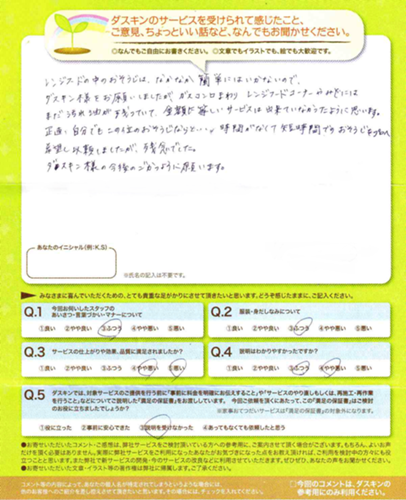 ダスキンのサービスを受けられて感じたこと、
ご意見、ちょっといい話など、なんでもお聞かせください。
◎なんでもご自由にお書きください。◎文章でもイラストでも、絵でも大歓迎です。
レンジフードの中のおそうじは、なかなか簡単にはいかないので、
ダスキン様をお願いしましたが、ガスコンロまわり レンジフードコーナーみぞには
まだ汚れ油が残っていて、金額に等しいサービスは出来ていなかったように思います。
正直、自分でもこの位のおそうじなら 時間がなくて 短時間でのおそうじを
希望し依頼しましたが、残念でした。
ダスキン様の今後のご 願います。
あなたのイニシャル(例:K.S)
※氏名の記入は不要です。
▶みなさまに喜んでいただくための、とても貴重な足がかりにさせて頂きたいと思います。どうぞ感じたままに、ご記入ください。
Q.1 今回お伺いしたスタッフの
あいさつ・言葉づかい・マナーについて
①良い ②やや良い ③ふつう ④やや悪い ⑤悪い
Q.2 服装・身だしなみについて
①良い ②やや良い ③ふつう ④やや悪い ⑤悪い
Q.3 サービスの仕上がりや効果、品質に満足されましたか?
①良い ②やや良い ③ふつう ④やや悪い ⑤悪い
Q.4 説明はわかりやすかったですか?
①良い ②やや良い ③ふつう ④やや悪い ⑤悪い
Q.5 ダスキンでは、対象サービスのご提供を行う前に「事前に料金を明確にお伝えすること」や「サービスのやり直しもしくは、再施工・再作業
を行うこと」などについてご説明した「満足の保証書」をお渡ししています。 今回ご依頼を頂くにあたって、この「満足の保証書」はご検討
のお役に立ちましたでしょうか?
※家事おてつだいサービスは「満足の保証書」の対象外になります。
①役に立った ②事前に安心できた ③説明を受けなかった ④あってもなくても依頼したと思う
●お寄せいただいたコメント・ご感想は、弊社サービスをご検討頂いている方への参考用に、ご案内させて頂く場合がございます。もちろん、よいお声
だけを頂く必要はありません。実際に弊社サービスをご利用になったあなたがお気づきになった点をお教え頂ければ、ご利用を検討中の方々にも役
立つことと思います。また弊社で新しい商品の開発・サービスの普及などにお役立てさせていただきます。ぜひぜひ、あなたの声をお聞かせください。
●お寄せいただいた文章・イラスト等の著作権は弊社に帰属します。ご了承ください。
□今回のコメントは、ダスキンの
参考用にのみご利用ください。